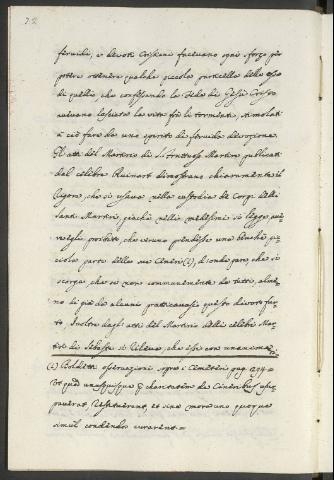 72
fervidi, e devoti Cristiani facevano ogni sforzo per
potere ottenere qualche piccola particella delle ossa
di quelli, che confessando la Fede di Gesù Cristo
avevano lasciata la vita frà li tormenti, stimolati
a ciò fare da uno spirito di fervida devozione.
Gli atti del Martirio di S. Fruttuoso Martire publicati
dal celebre Ruinart dimostrano chiaramente il
rigore, che si usava nella custodia de Corpi delli
Santi Martiri, giachè nelli medesimi si legge, av-
proibito, che veruno prendesse una benchè pic-
ciola parte delle sue Ceneri (1), d'onde pare, che si
scorga, che se non communemente da tutti, alme-
no di più da alcuni praticavasi questo divoto fur-
to, Inoltre dagli atti del Martirio delli celebri Mar-
tiri di Sebaste si rileva, che essi con unanime
(1) Boldetti osservazioni sopra i Cimiterj pag. 294 =
Ut quod unusquisque charitatem de Cineribus usur-
paverat, restituerent, et sine mora uno quoque
simul condendos curarent =